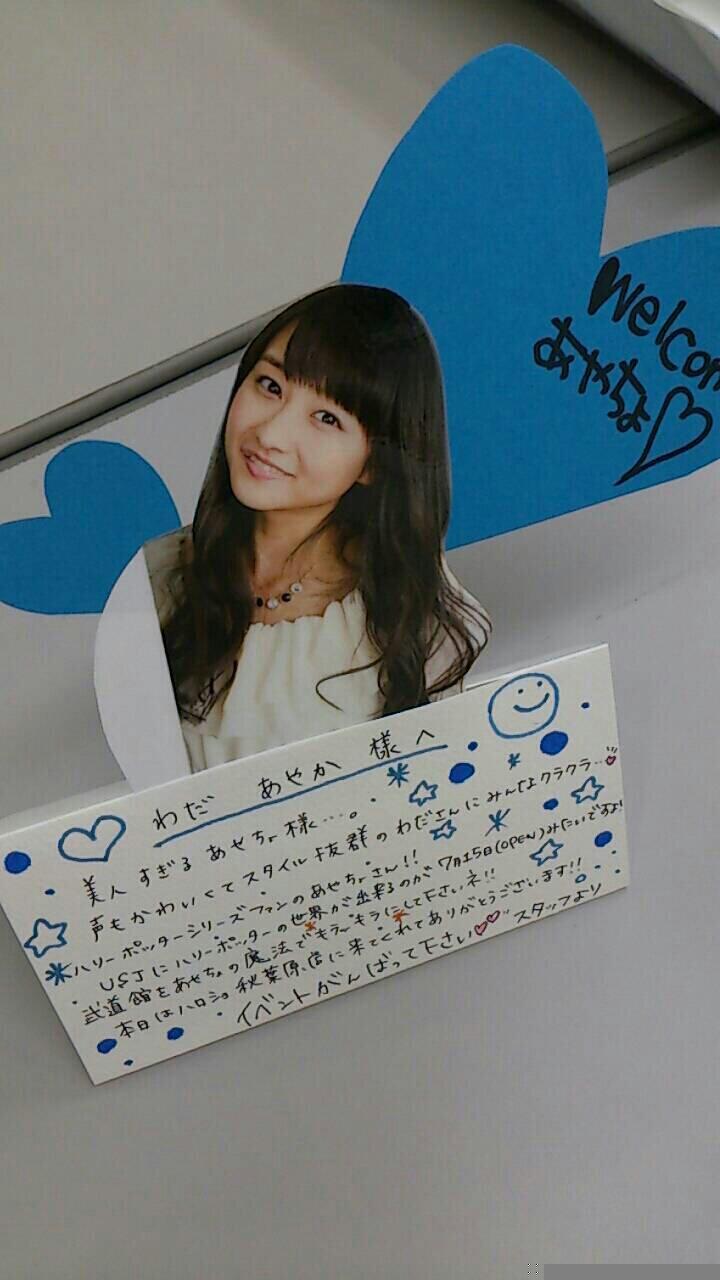 Welcom
あきはら
わだ あやか 様へ
美人すぎるあやちょ様…。
声もかわいくてスタイル抜群のわださんにみんなクラクラ…
ハリーポッターシリーズファンのあやちょさん!!
USJにハリーポッターの世界が出来るのが7月15日(OPEN)みたいですよ!
武道館をあやちょの魔法でキラキラにして下さいネ!!
本日はハロショ秋葉原店に来てくれてありがとうございます!!
イベントがんばって下さい スタッフより